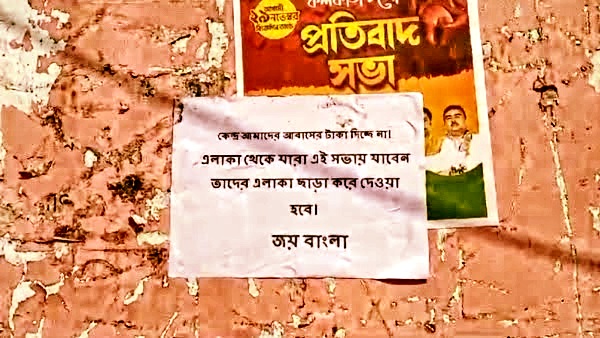 ২৯ নভেম্বর
প্রতিবাদ
সভা
কেন্দ্র আমাদের আবাসের টাকা দিচ্ছে না।
এলাকা থেকে যারা এই সভায় যাবেন
তাদের এলাকা ছাড়া করে দেওয়া
হবে।
জয় বাংলা